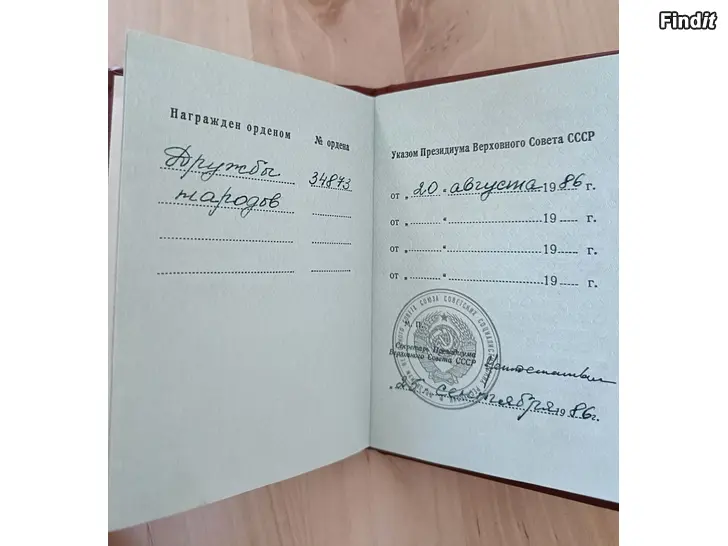 Findit
Награжден орденом
№ ордена
Дружбы 34873
народов
Указом Президиума Верховного Совета СССР
от „ 20 " августа 1986 г.
от „ " 19 г.
от „ " 19 г.
от „ " 19 г.
М. П.
Секретарь Президиума
Верховного Совета СССР
„ 25 " сентября 1986 г.